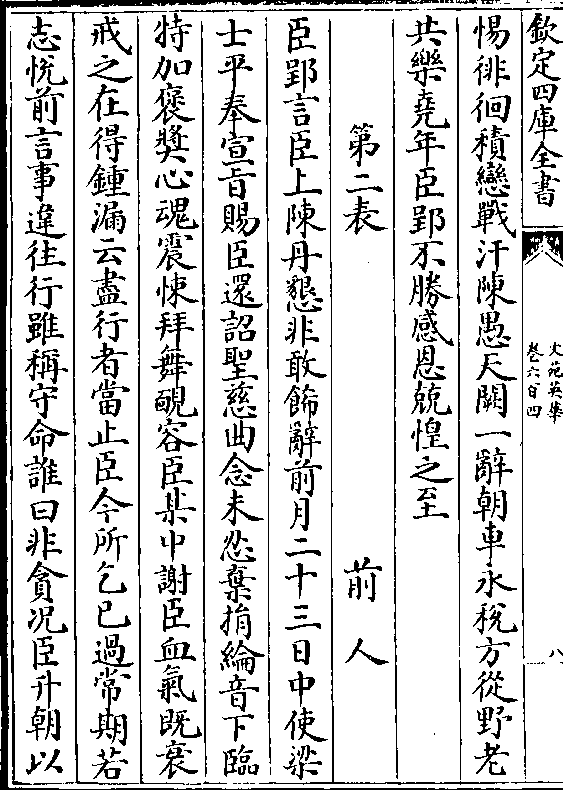 欽定四庫全書
文苑英華
卷六百四
八
惕徘徊積戀戰汗陳愚天闕一辭朝車永稅方從野老
共樂堯年臣郢不勝感恩兢惶之至
第二表　前人
臣郢言臣上陳丹懇非敢飾辭前月二十三日中使梁
士平奉宣旨賜臣還詔聖慈曲念未忍棄捐綸音下臨
特加褒奬心魂震悚拜舞靦容臣某中謝臣血氣既衰
戒之在得鍾漏云盡行者當止臣今所乞已過常期若
志悦前言事違往行雖稱守命誰曰非貪况臣升朝以